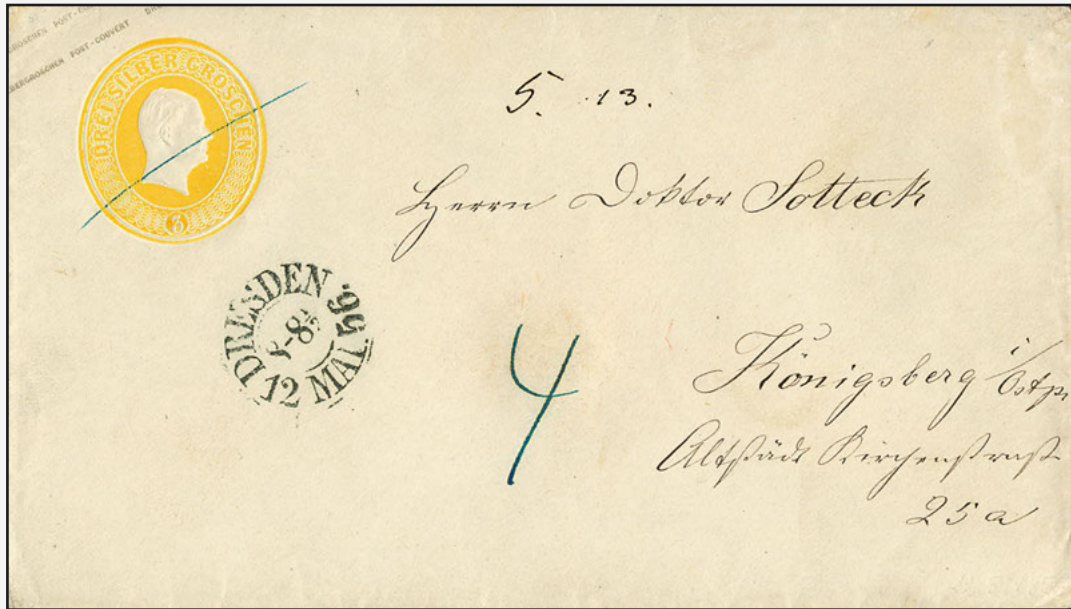 GROSCHEN POST-COUVERT DR
BERGROSCHEN POST-COUVERT
DREI SILBER GROSCHEN
3
5. 13.
Herrn Doktor Sotteck
DRESDEN '95
8-8½
12 MAI.
4
Königsberg i/Ostpr
Altstädt Kirchenstraß
25a